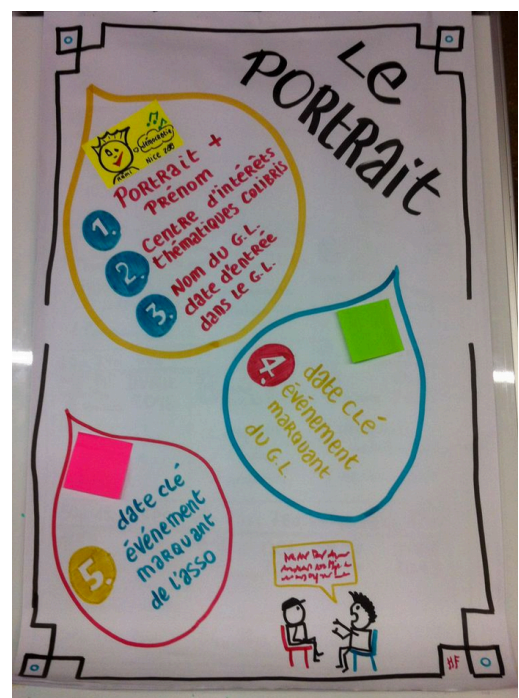 Le
PORtRait
démocratie
Rémi
NICE 200
PORtRait +
PRéNOM
1.
2.
Centre d'intérêts
thématiques COLIBRIS
3.
Nom du G.L.
date d'entrée
dans le G.L.
4.
date CLé
événement
MaRQUANT
du G.L.
5.
date CLé
événement
MaRQUANT
de L'ASSO
HF